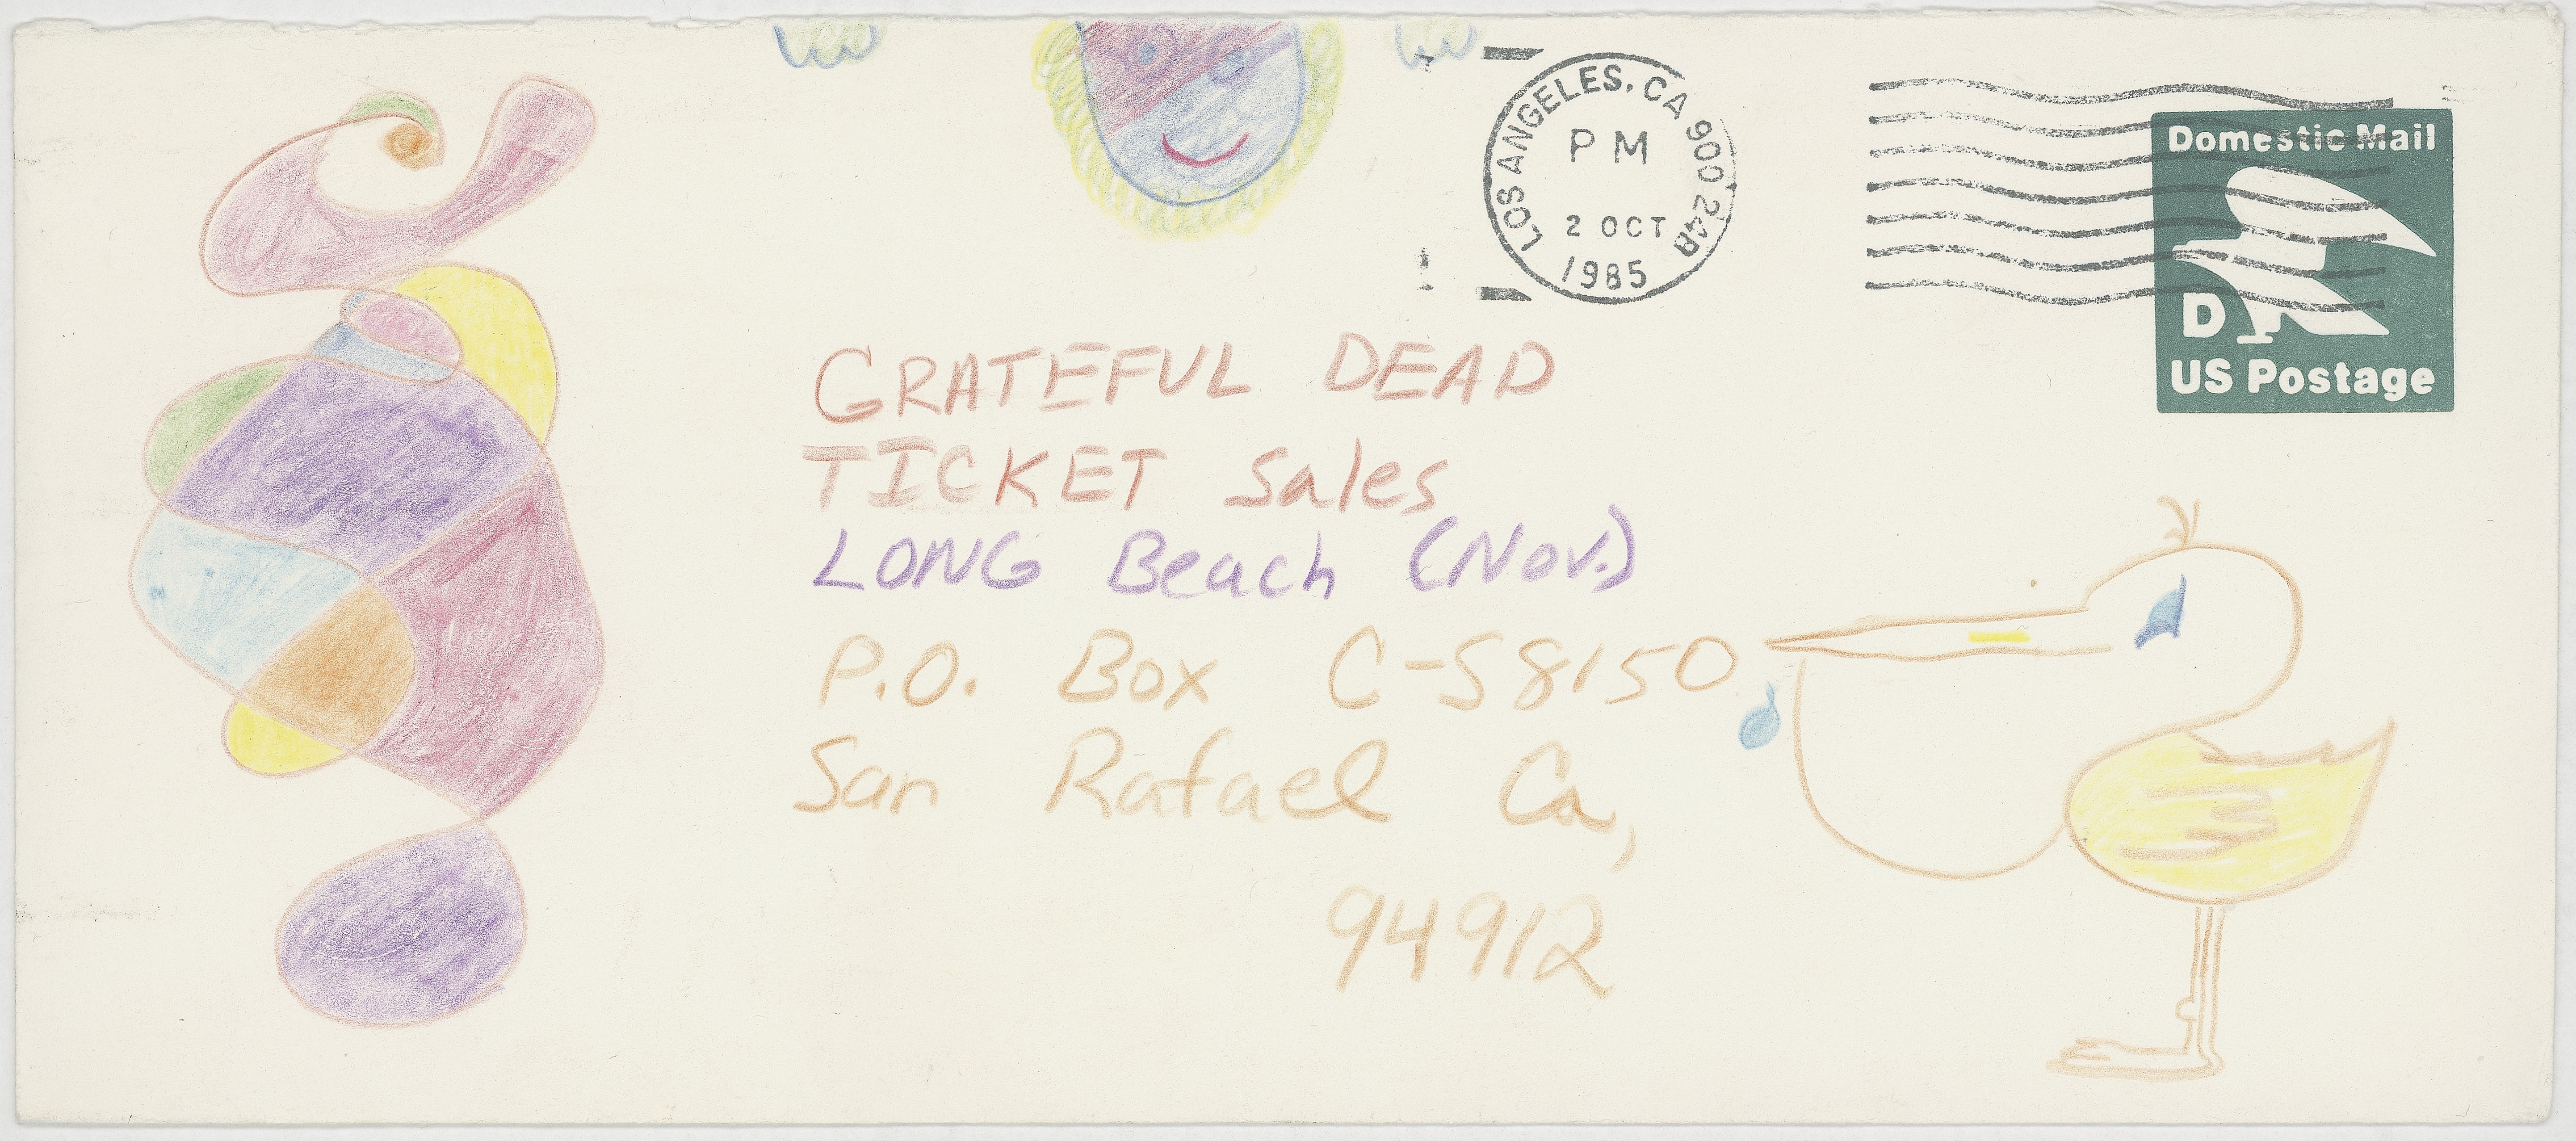 LOS ANGELES, CA 900 24A
PM
2 OCT
1985
Domestic Mail
D
US Postage
GRATEFUL DEAD
TICKET Sales
LONG Beach (Nov.)
P.O. Box C-S8150
San Rafael Ca,
94912